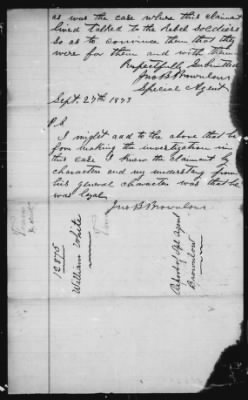 as was the case where this claimant
lived talked to the Rebel Soldiers
so as to convince them that they
were for them and with them
Respectfully Submitted
Jno B Brownlow
Special Agent
Sept. 27th 1873
P.S
I might add to the above that be
fore making the investigation in
this case I knew the claimant by
character and my understang from
his general character was that he
was loyal
Jno B Brownlow
12575
William White
Report of Spl agent
Brownlow